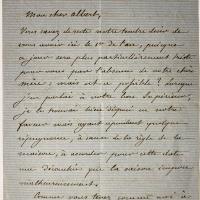 Mon cher Albert,
Vous savez de reste notre tendre désir de
vous avoir ici le 1er de l'an, puisque
ce jour sera plus particulièrement triste
pour nous par l'absence de notre chère
mère ; mais est-ce possible ? Lorsque
j'en parlai à votre Père Supérieur,
je le trouvai bien disposé en notre
faveur mais ayant cependant quelque
répugnance, à cause de la règle de la
maison, à accorder pour cette date
une dérogation que la raison impose
malheureusement.
Comme vous tenez comme nous à